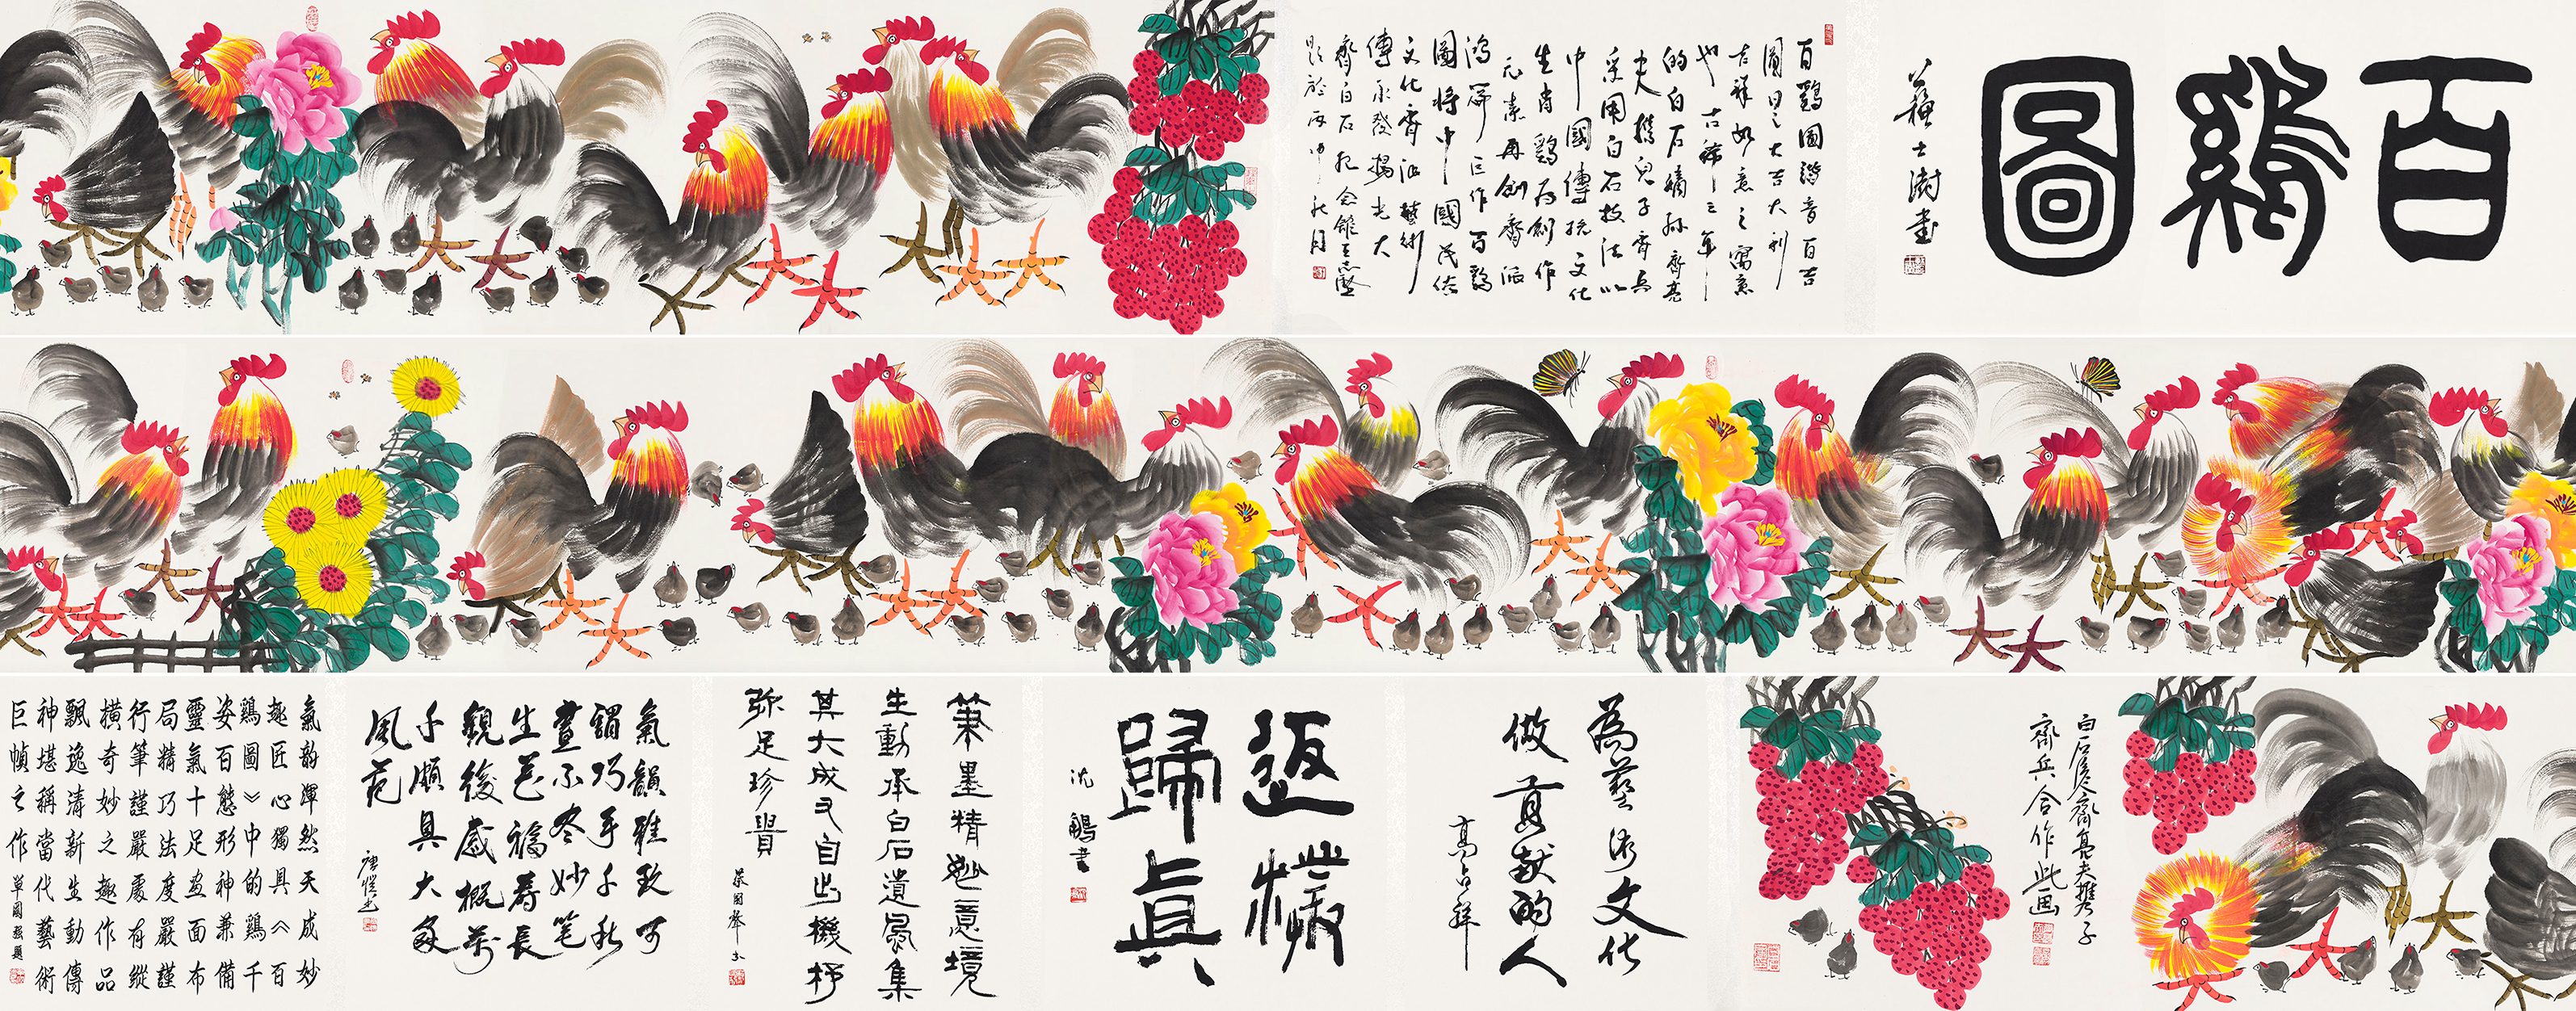 百鷄圖
蘇士澍書
百鷄圖諧音百吉
圖曰之大吉大利
吉祥如意之寓意
也古稀之年
的白石嫡孙齊亮
夫攜兒子齊兵
采用白石技法以
中國傳統文化
生肖鷄为創作
元素再創齊派
鴻篇巨作百鷄
圖将中國民俗
文化齊派藝術
傳承發揚光大
齊白石纪念館王志堅
題於丙申秋月
白石屋齋亮夫攜子
齊兵合作此画
為藝術文化
做貢献的人
高占祥
返樸
歸真
沈鵬書
筆墨精妙意境
生動承白石遺風集
其大成又自出機杼
弥足珍貴
氣韻雅致可
謂巧手千秋
畫不盡妙笔
生花福壽長
觀後感概萬
千頗具大家
風范
唐愷書
氣韵渾然天成妙
趣匠心獨具《百
鷄圖》中的鷄千
姿百態形神兼備
靈氣十足画面布
局精巧法度嚴謹
行筆謹嚴處有縱
横奇妙之趣作品
飄逸清新生動傳
神堪稱當代藝術
巨幀之作
單國强題